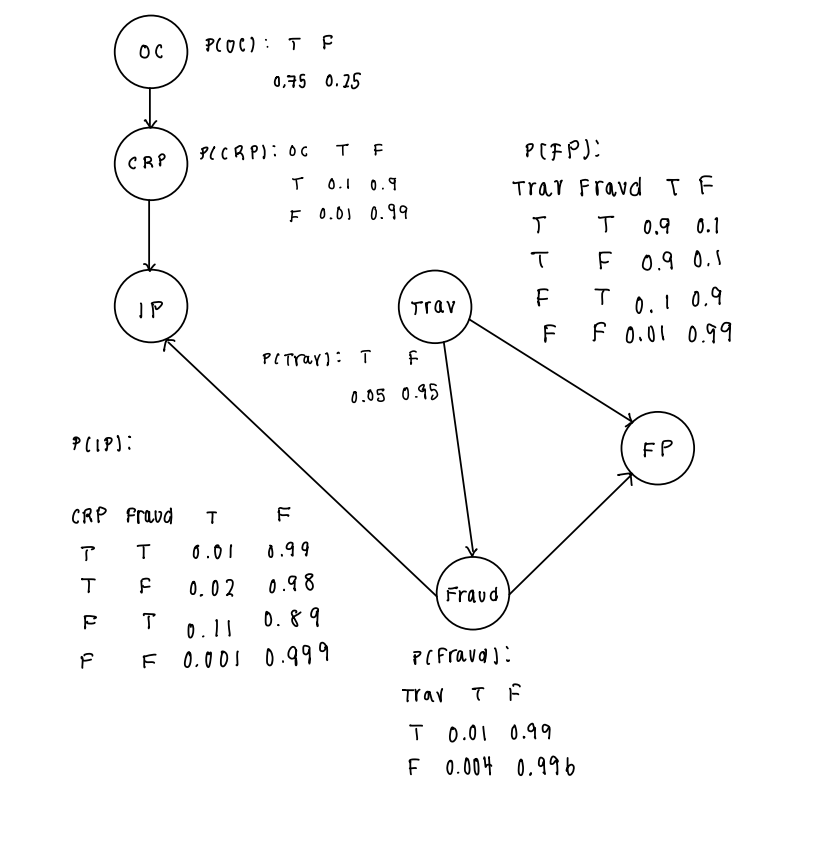 OC
P(OC): T F
0.75 0.25
CRP
P(CRP): OC T F
T 0.1 0.9
F 0.01 0.99
P(FP):
Trav Fraud T F
T T 0.9 0.1
T F 0.9 0.1
F T 0.1 0.9
F F 0.01 0.99
IP
Trav
P(Trav): T F
0.05 0.95
FP
P(IP):
CRP Fraud T F
T T 0.01 0.99
T F 0.02 0.98
F T 0.11 0.89
F F 0.001 0.999
Fraud
P(Fraud):
Trav T F
T 0.01 0.99
F 0.004 0.996